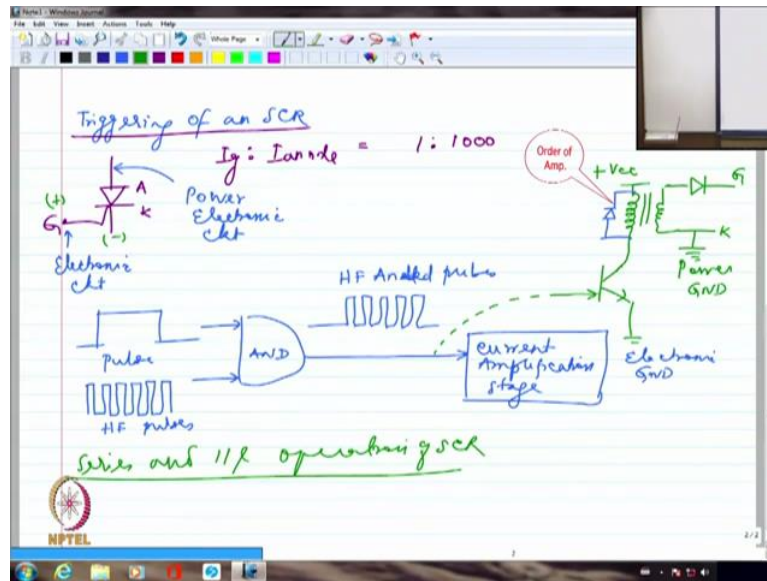 Note1 - Windows Journal
File Edit View Insert Actions Tools Help
Whole Page
Triggering of an SCR
Ig : Ianode = 1 : 1000
Order of
Amp.
+Vcc
G
K
Power
GND
A
K
(+)
G
(-)
Power
Electronic
Ckt
Electronic
Ckt
HF Anded pulses
pulse
AND
HF pulses
current
Amplification
stage
Electronic
GND
Series and 11l operation of SCR
NPTEL
2/2